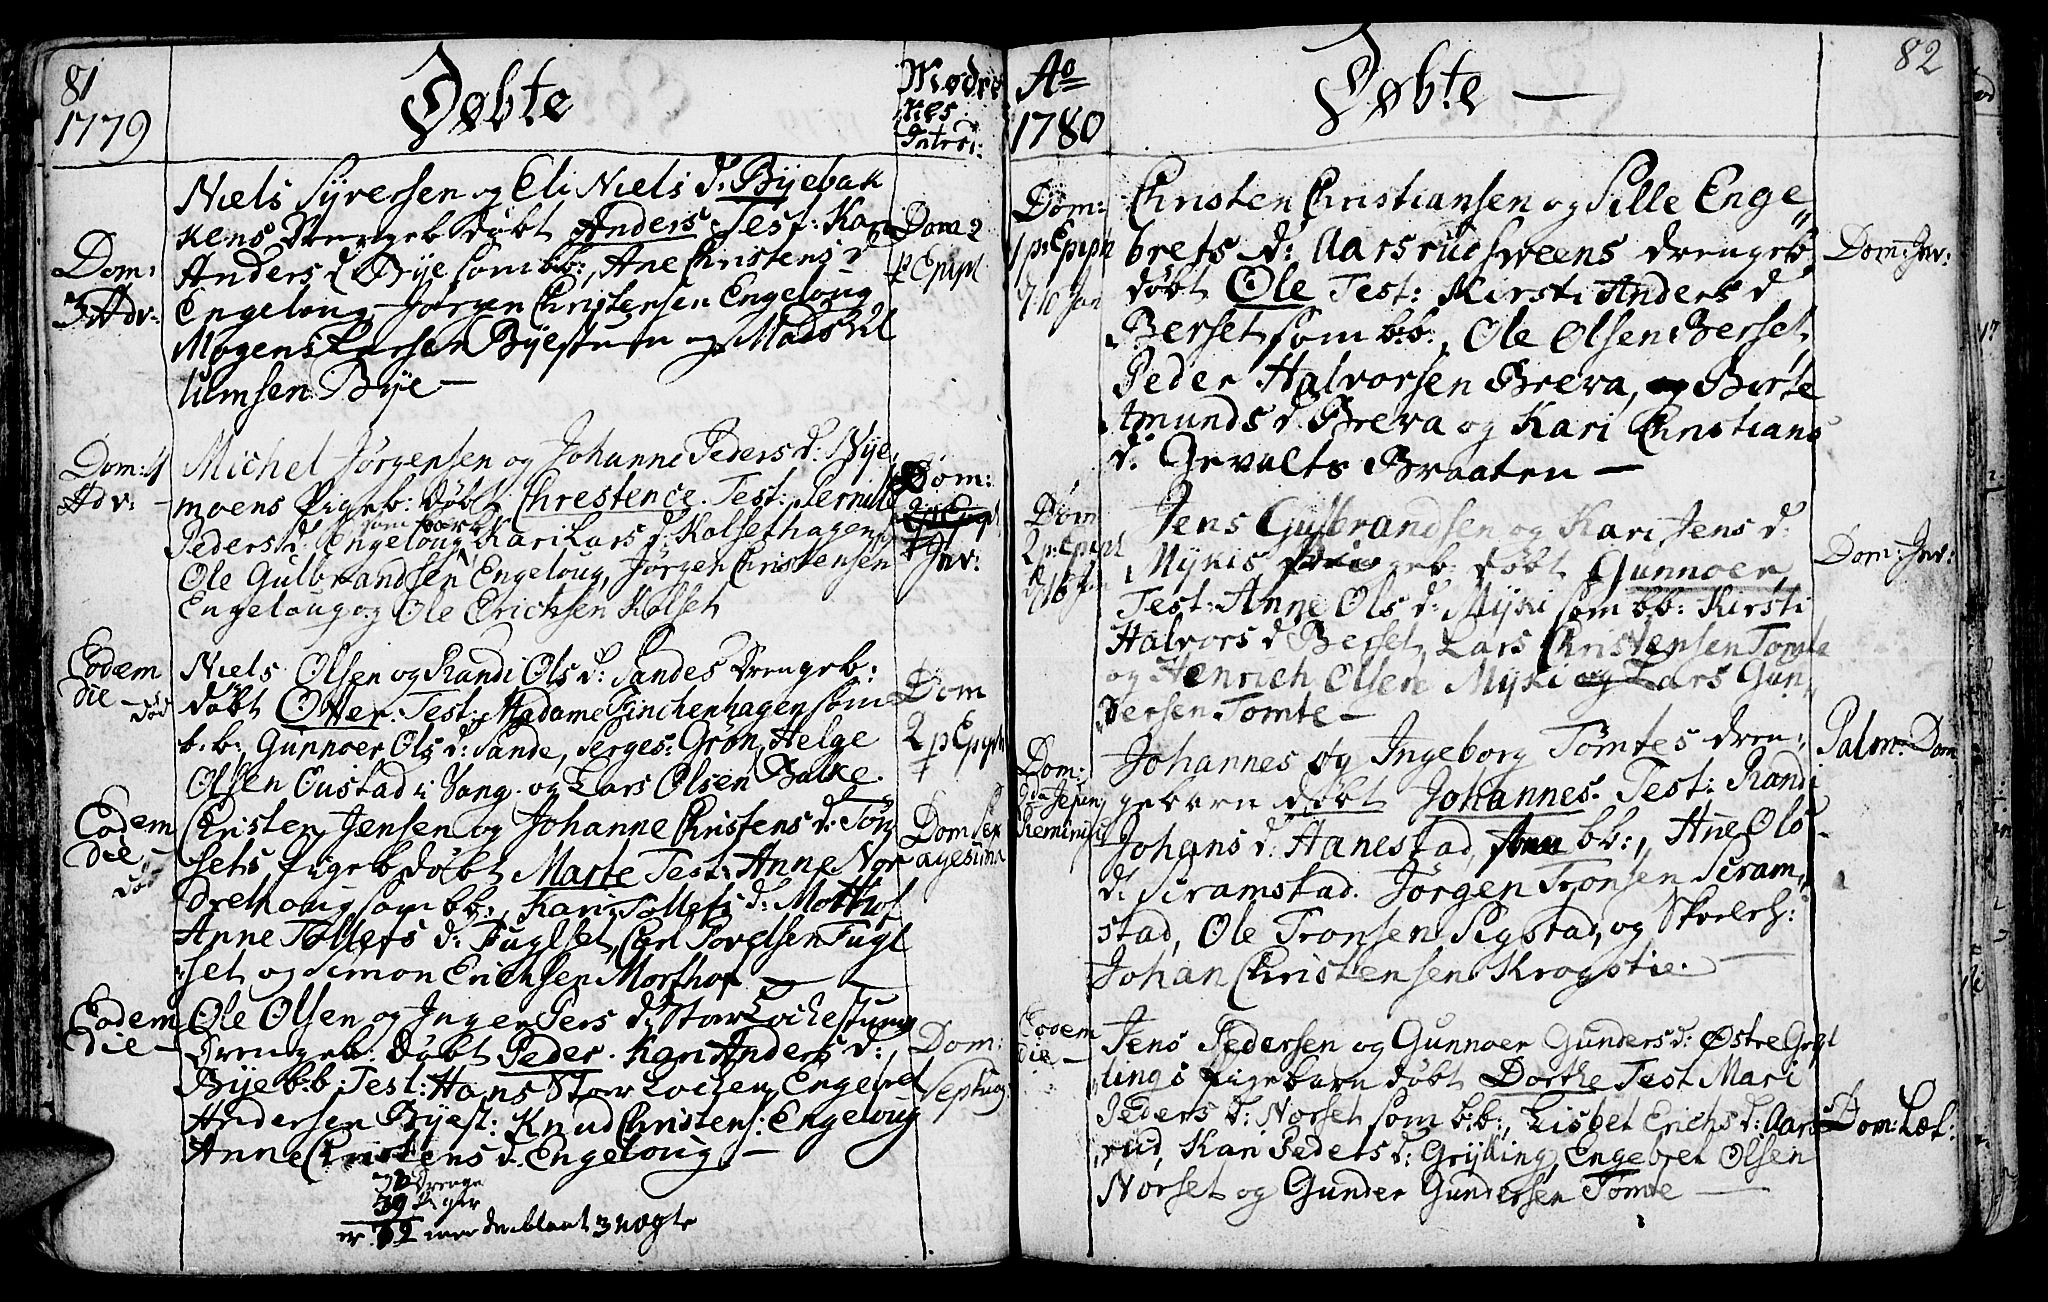 81
1779
Døbte
Mødre
nes
Introd:
Niels Syversen og Eli Niels d: Byebak
kens Drengeb døbt Anders. Test: Kari
Anders d Bye som bb:, Ane Christens d
Engeloug Jørgen Christensen Engeloug
Mogens Larsen Byestuen og Mads Vil
umsen Bye —
Dom:
3 Adv:
Dom 2
p Epiph
Michel Jørgensen og Johanne Peders d: Nye
moens Pigeb: døbt Chrestence. Test: Pernille
Peders d: Engeloug som bar b: Kari Lars d: Kolsethagen
Ole Gulbrandsen Engeloug, Jørgen Christensen
Engeloug og Ole Erichsen Kolset
Dom: 4
Adv: —
Dom:
Inv:
Niels Olsen og Randi Ols d: Sandes Drengeb:
døbt Otter. Test: Madame Finchenhagen som
b.b:, Gunnoer Ols d: Sande, Serges: Grøn, Helge
Olsen Oustad i Vang. og Lars Olsen Balke.
Eodem
die —
død
Dom
2 p Epiph
Christen Jensen og Johanne Christens d: Tøn
sets Pigeb døbt Marte Test: Anne Nor
drehoug som bb:, Kari Tollefs d: Mothof
Anne Tollefs d: Fuglset, Carl Torelsen Fugl
set og Simon Erichsen Morthof —
Eodem
die —
død
Dom Sex
agesima
Ole Olsen og Inger Pers d: Stor Lochestuen
Drengeb. døbt Peder. Kari Anders d:,
Bye b:b: Test: Hans Stor Lochen, Engebret
Andersen Byest: Knud Christens: Engeloug
Anne Christens d. Engeloug. —
Eodem
die —
Dom:
Septuag:
Drenge
39 Piger
er 72 iblant 3 uægte
Ao
1780
Døbte —
82
Dom:
1 p: Epiph
d. 10 Jan
Christen Christiansen og Sille Enge
brets d: Aarsrudsveens Drengeb
døbt Ole Test: Kirsti Anders d
Berset som b:b:, Ole Olsen Berset
Peder Halvorsen Breva, og Birte
Amunds d. Breva og Kari Christians
d: Gevalts Braaten —
Dom: Inv:
Dom
2 p: Epiph
d. 16 Jan
Jens Gulbrandsen og Kari Jens d:
Mykis Pigeb: døbt Gunnoer,
Test: Anne Ols d: Myki som bb: Kirsti
Halvors d Berset Lars Christensen Tomte
og Henrich Olsen Myki og Lars Gun
dersen. Tomte —
Dom: Inv:
Dom:
Remini
Johannes og Ingeborg Tomtes dren
gebarn døbt Johannes. Test: Randi
Johans d: Hanestad, som bb:, Ane Ols
d: Scramstad. Jørgen Tronsen Scram
stad, Ole Tronsen Sigstad, og Skoeleh:
Johan Christensen Krogstie. —
Palm: Dom
Eodem
die —
Jens Pedersen og Gunnoer Gunders d: Østre Gryl
lings Pigebarn døbt Dorthe Test Mari
Peders d: Norset som b:b:, Lisbet Erichs d: Aars
rud, Kari Peders d: Grylling, Engebret Olsen
Norset og Gunder Gundersen Tomte —
Dom: Læt: